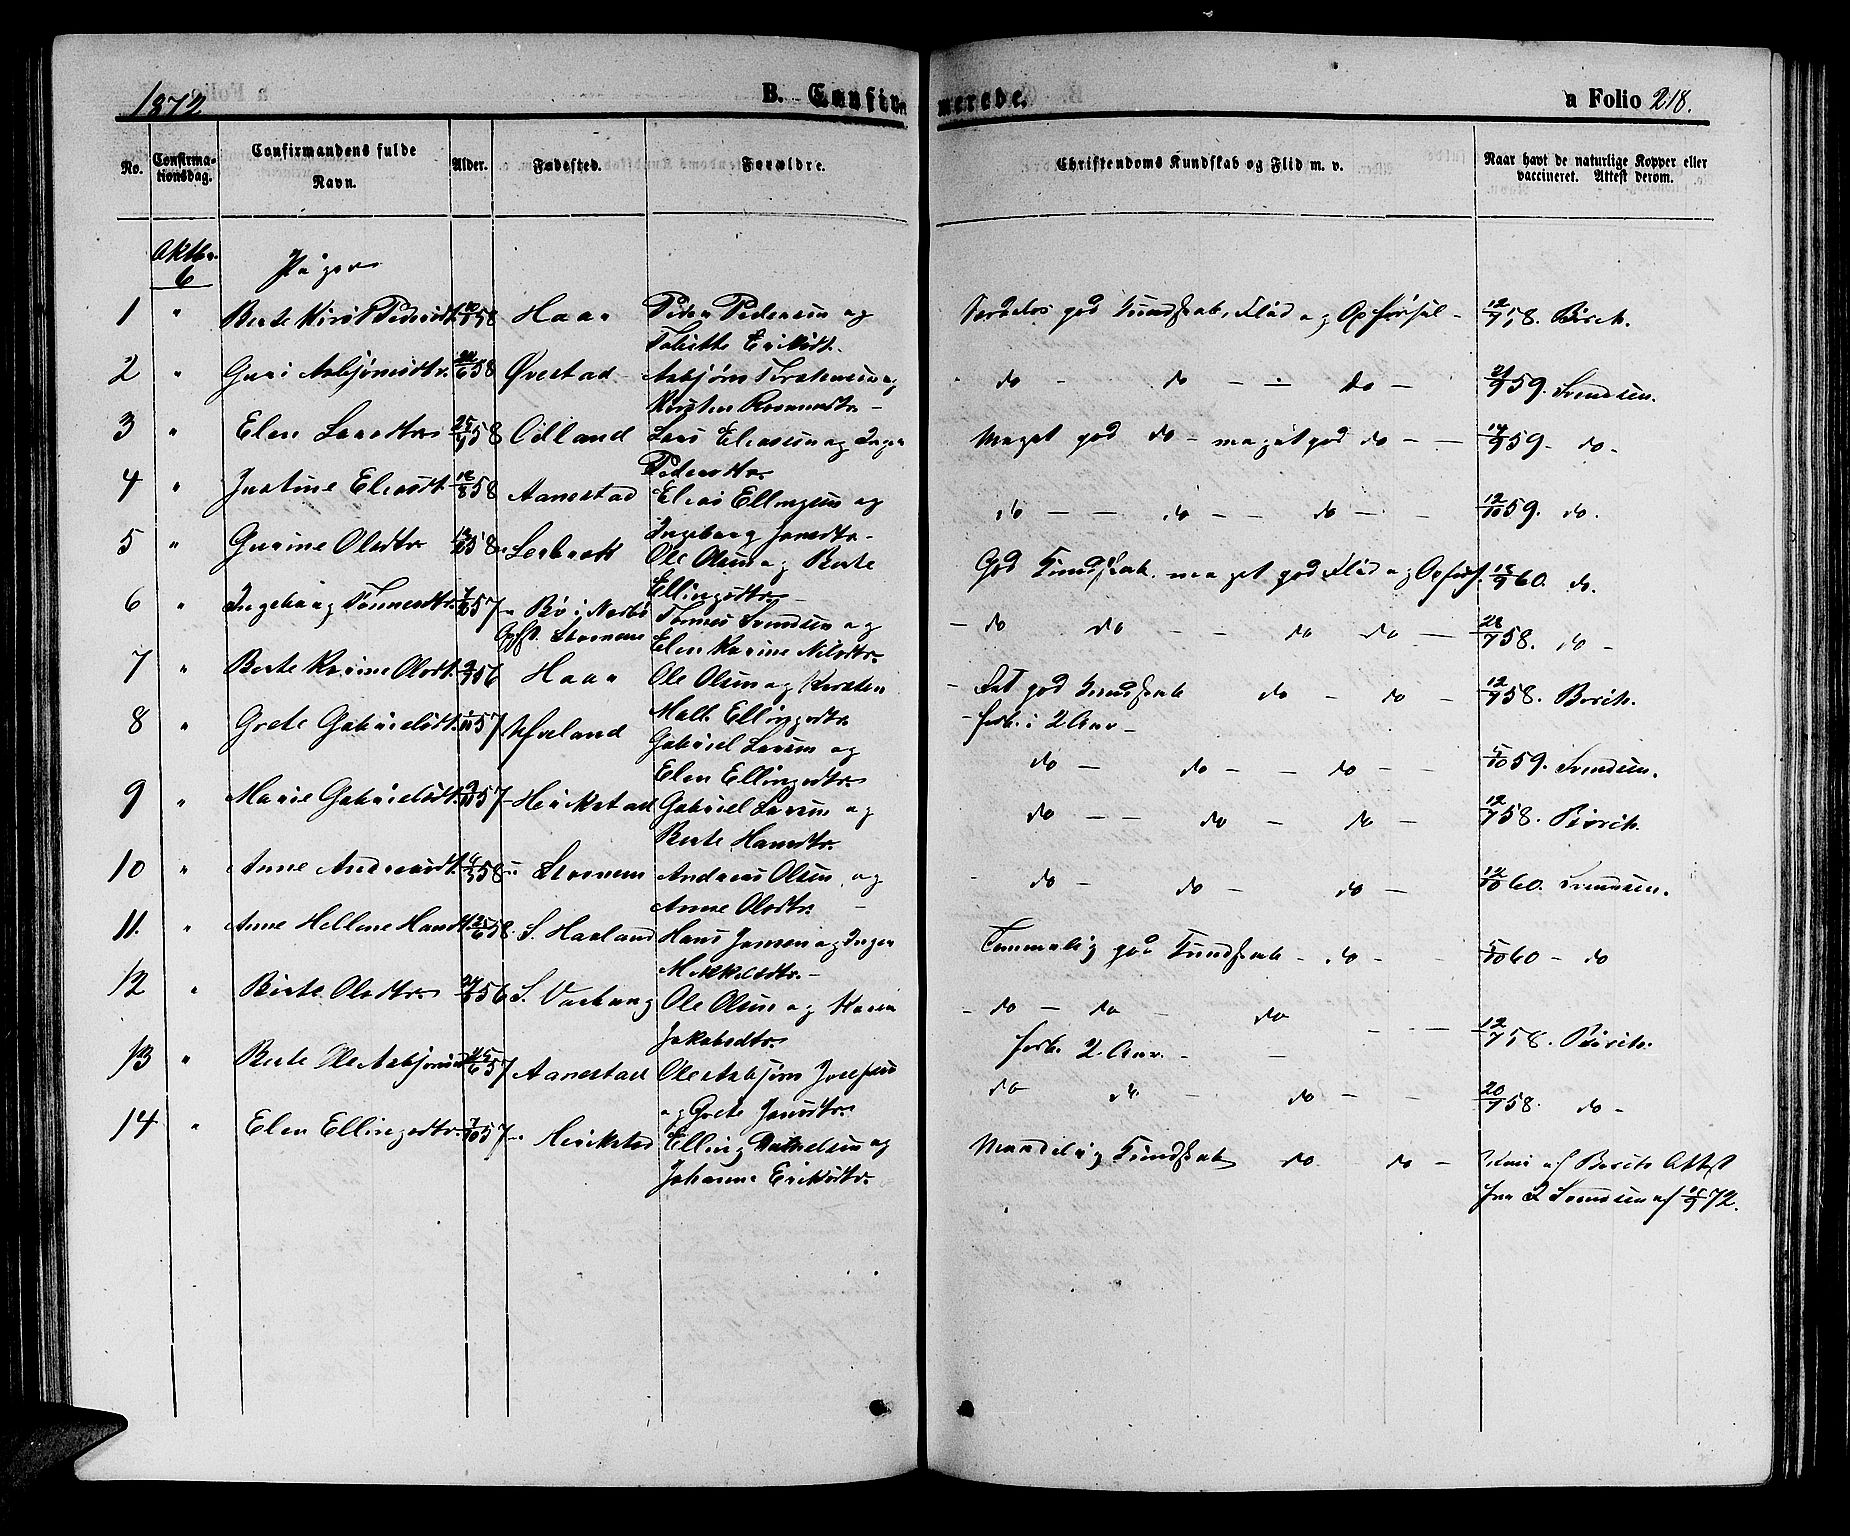 1872 B. Confirmerede. a Folio 218.
No. Confirmationsdag. Confirmandens fulde Navn. Alder. Fødested. Forældre. Christendoms Kundskab og Flid m. v. Naar havt de naturlige Kopper eller vaccineret. Attest derom.
Oktbr. 6 Piger
1 " Berte Kirst. Pedersdt. 58 Haar Peder Pedersen og
Tobitte Eriksdt. Særdeles god Kundskab, Flid og Opførsel - 12/7 58. Borch.
2 " Guri Asbjørnsdtr. 58 Øvestad Asbjørn Torstensen og
Kirsten Rasmusdtr. - do - do - - do - 59. Svendsen.
3 " Elen Larsdtr 58 Odland Lars Eliassen og Inger
Pedersdtr. Meget god do - meget god do - - 59 - do -
4 " Justine Eliasdt. 58 Aanestad Elias Ellingsen og
Ingeborg Jonasdtr - do - - do - - do - - 12/10 59. do.
5 " Gurine Olsdtr 58 Lerbrekk Ole Olsen og Berte
Ellingsdtr. God Kundskab. meget god Flid og Opførs. 60. do.
6 " Ingeborg Tønnesdtr. 57 Bø i Nærbø
Opfst. Stornem Tønnes Svendsen og
Elen Karine Nilsdtr. - do do - - do do - 58. do -
7 " Berte Karine Olsdt. 56 Haar Ole Olsen og Kirsten
Mall. Ellingsdtr. - Det god Kundskab do - do - 12/7 58. Borch.
- forb. i 2 Aar -
8 " Grete Gabrielsdt. 57 Gabriel Larsen og
Elen Ellingsdtr. do - do - - do - - 5/10 59. Svendsen.
9 " Marie Gabrielsdt. 57 - Herikstad Gabriel Larsen og
Berte Hansdtr. do - - do - do - 12/7 58. Borch.
10 " Anne Andreasdt. 58 Stornem Andreas Olsen og
Anne Olsdtr. - - do - do - do - 12/10 60. Svendsen.
11. " Anne Hellene Hansdt. 58. S. Haaland Hans Jonsen og Inger
Mikkelsdtr. - Temmelig god Kundskab - do - - 5/10 60 - do
12 " Berte Olsdtr. 56 S. Varhaug Ole Olsen og Karen
Jakobsdtr. - do - do - do - - - 12/7 58. Borch.
forb. 2 Aar. -
13 " Berte Ole Asbjørnsd 57 Aanestad Ole Asbjørn Josefsen
og Grete Jonsdtr. do do - do - - 20/7 58. do -
14 " Elen Ellingsdtr. 57 Herikstad Elling og
Johanne Eriksdtr. Maadelig Kundskab do. do - af Borch Attest
fra Svendsen af 72.